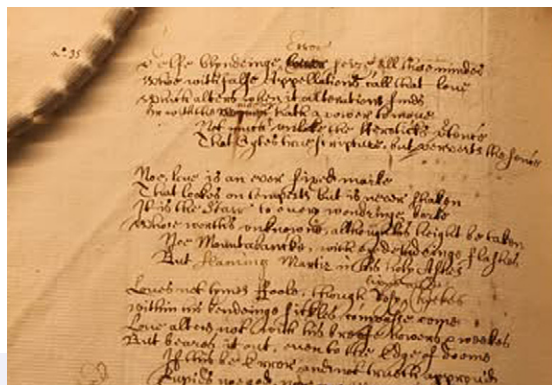 Error
nº. 35
Selfe blyndeinge lover seaze all those mindes
Whoe with false Appellations call that love
Which alters when it alterations finds
Or with the mover hath a power to move
Not much unlike the Hereticks pretence
That Cytes true scripture, but perverts the sence
Noe, love is an ever fixed marke
That lookes on tempests but is never shaken
It is the Starr to every wondringe barke
Whose worths unknowne, although his height be taken
Noe Mountabanke, with eye deludeinge flashes
But flaming Martir in his holy Ashes
Loves not tymes ffoole, though Rosy Cheekes
within his bendeinge sickles compasse come
Love alters not with his breife howers & weekes
But beares it out, even to the Edge of doome
If this be Error and not truth approv'd
Cupids noe god, nor